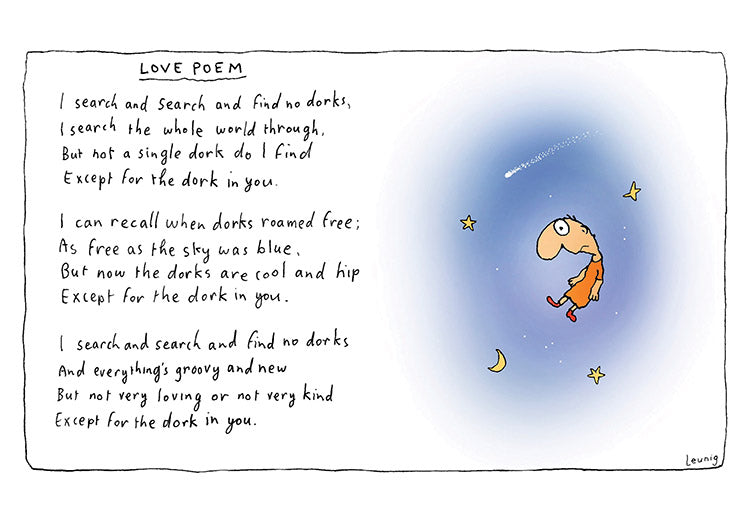 LOVE POEM
I search and search and find no dorks,
I search the whole world through,
But not a single dork do I find
Except for the dork in you.
I can recall when dorks roamed free;
As free as the sky was blue,
But now the dorks are cool and hip
Except for the dork in you.
I search and search and find no dorks
And everything's groovy and new
But not very loving or not very kind
Except for the dork in you.
Leunig